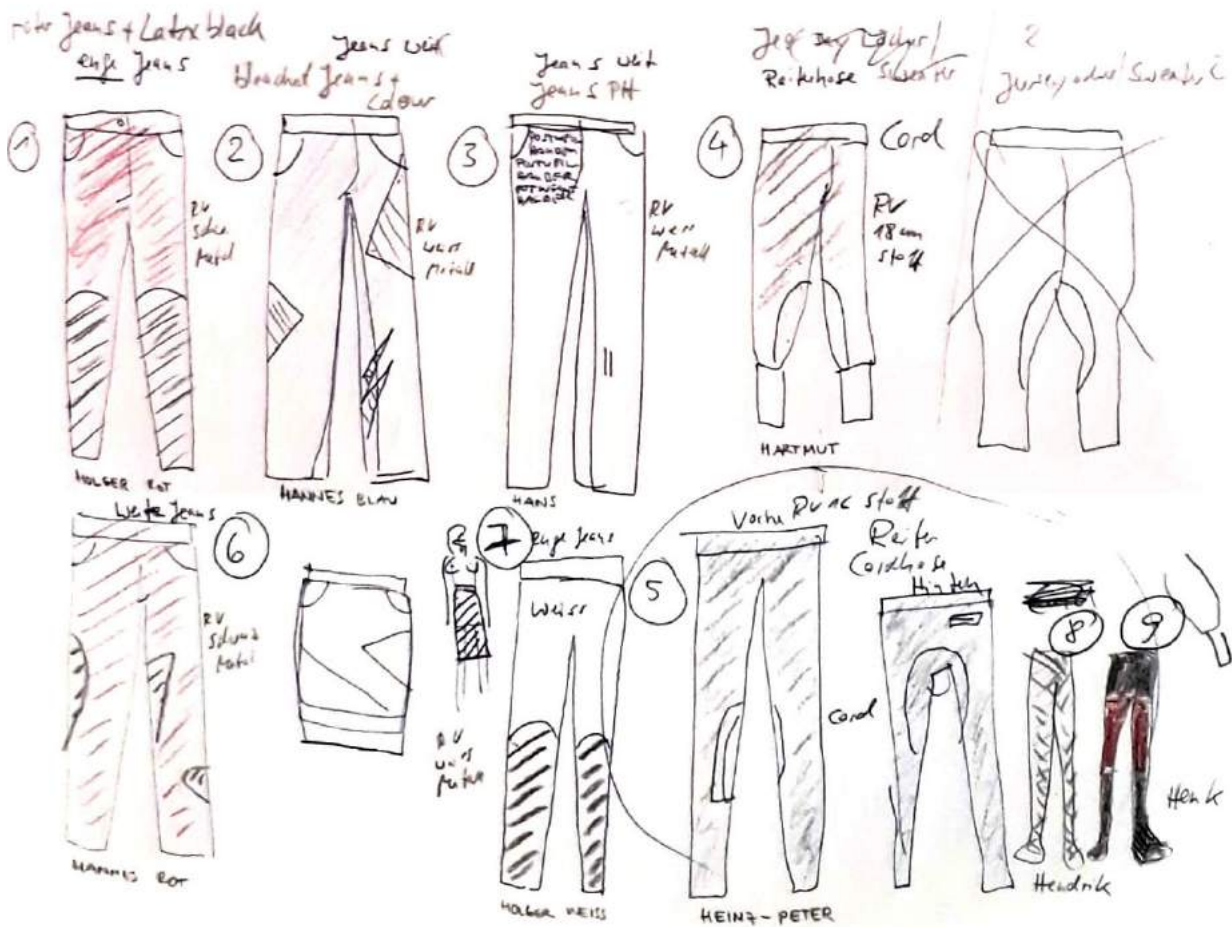 Jeans + Latex black
enge Jeans
Jeans weit
Jeans +
Colour
Jeans weit
Jeans PH
Reiterhose Sweater
2
1
RV
Metal
HOLGER ROT
2
RV
weiss
Metall
HANNES BLAU
3
RV
weiss
Metall
HANS
4
Cord
RV
18cm
Stoff
HARTMUT
Weite Jeans
RV
Schwarz
Metal
HANNES ROT
6
7
enge Jeans
Weiss
RV
weiss
Metall
HOLGER WEISS
5
RV Stoff
Cord
HEINZ-PETER
Reiter
Cordhose
Hinten
8
Hendrik
9
Henk